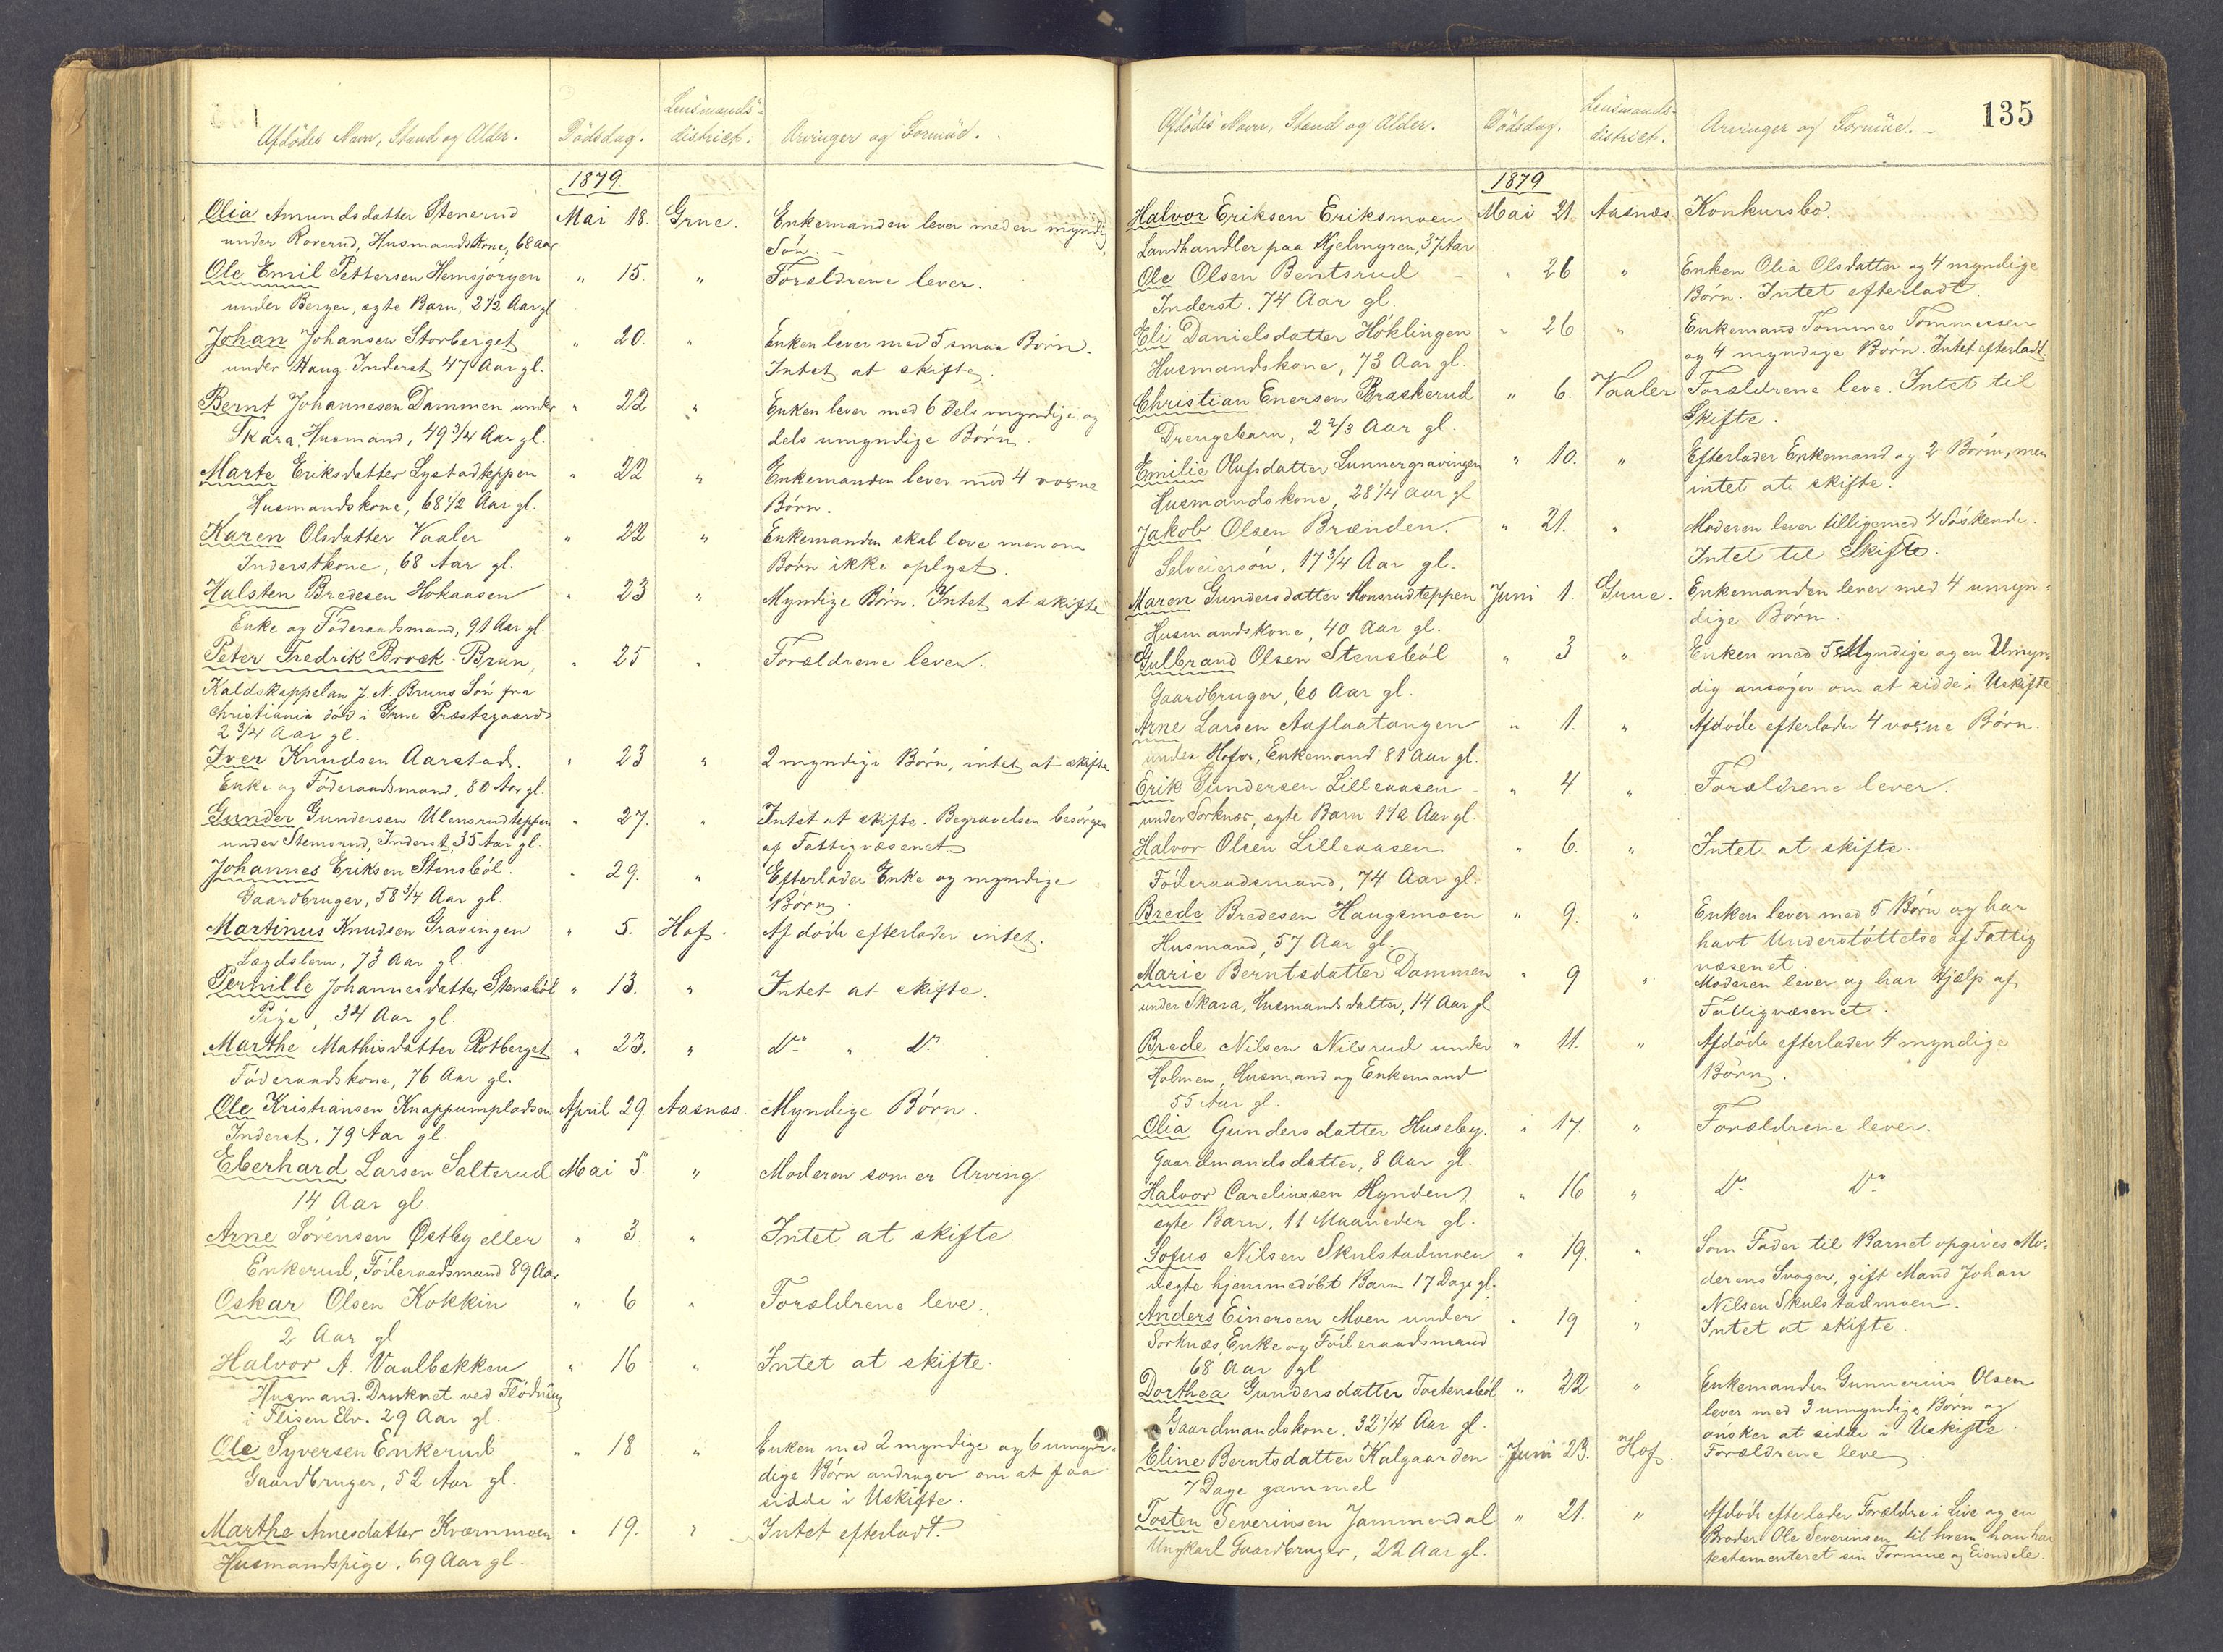 Afdödes Navn, Stand og Alder.
Dödsdag.
Lensmands-
district.
Arvinger og Formue.
1879
Olia Amundsdatter Stenerud Mai 18. Grue. Enkemanden lever med en myndig
under Roverud, Husmandskone, 68 Aar Sön. -
Ole Emil Pettersen Hemsjöryen " 15. " Forældrene lever.
under Berger, egte Barn, 2 1/2 Aar gl
Johan Johansen Storberget " 20. " Enken lever med 5 smaa Börn.
under Haug. Inderst 47 Aar gl. Intet at skifte.
Bernt Johannesen Dammen under " 22 " Enken lever med 6 dels myndige og
Skara, Husmand, 49 3/4 Aar gl. dels umyndige Börn.
Marte Eriksdatter Lystadteppen " 22 " Enkemanden lever med 4 voxne
Husmandskone, 68 1/2 Aar gl. Börn.
Karen Olsdatter Vaaler " 22 " Enkemanden skal leve men om
Inderstkone, 68 Aar gl. Börn ikke oplyst.
Halsten Bredesen Hokaasen " 23 " Myndige Börn. Intet at skifte
Enke og Föderaadsmand, 91 Aar gl.
Peter Fredrik Brock Brun, " 25 " Forældrene lever.
Kaldskappelan J. N. Bruns Sön fra
Christiania död i Grue Præstegaard
2 3/4 Aar gl.
Iver Knudsen Aarstad. " 23 " 2 myndige Börn, intet at skifte
Enke og Föderaadsmand, 80 Aar gl.
Gunder Gundersen Ulensrudteppen " 27. " Intet at skifte. Begravelsen besörges
under Stemsrud, Inderst, 35 Aar gl. af Fattigvæsenet
Johannes Eriksen Stensböl. " 29. " Efterlader Enke og myndige
Gaardbruger, 58 3/4 Aar gl. Börn.
Martinus Knudsen Gravingen " 5. Hof. Afdöde efterlader intet.
Lægdslem, 73 Aar gl.
Pernille Johannesdatter Stensböl " 13. " Intet at skifte.
Pige, 34 Aar gl.
Marthe Mathisdatter Rotberget " 23. " do " do
Föderaadskone, 76 Aar gl.
Ole Kristiansen Knappumpladsen April 29. Aasnæs. Myndige Börn.
Inderst, 79 Aar gl.
Eberhard Larsen Salterud Mai 5. " Moderen som er Arving.
14 Aar gl.
Arne Sörensen Østby eller " 3. " Intet at skifte.
Enkerud, Föderaadsmand 89 Aar
Oskar Olsen Kokkin " 6 " Forældrene leve.
2 Aar gl
Halvor A. Vaalbækken " 16 " Intet at skifte.
Husmand. Druknet ved Flödning
i Flisen Elv. 29 Aar gl.
Ole Syversen Enkerud " 18 " Enken med 2 myndige og 6 umyn-
Gaardbruger, 52 Aar gl. dige Börn andrager om at faa
sidde i Uskifte.
Marthe Arnesdatter Kværnmoen " 19. " Intet efterladt.
Husmandspige, 69 Aar gl.
135
Afdödes Navn, Stand og Alder.
Dödsdag.
Lensmands-
district.
Arvinger og Formue. -
1879
Halvor Eriksen Eriksmoen Mai 21. Aasnæs. Konkursbo.
Landhandler paa Kjelmyren, 37 Aar
Ole Olsen Bentsrud - " 26 " Enken Olia Olsdatter og 4 myndige
Inderst. 74 Aar gl. Börn. Intet efterladt.
Eli Danielsdatter Höklingen " 26 " Enkemand Tommes Tommessen
Husmandskone, 73 Aar gl. og 4 myndige Börn. Intet efterladt.
Christian Enersen Braskerud " 6. Vaaler Forældrene leve. Intet til
Drengebarn, 2 2/3 Aar gl. Skifte.
Emilie Olufsdatter Lunnergravingen " 10. " Efterlader Enkemand og 2 Börn, men
Husmandskone, 28 1/4 Aar gl intet at skifte.
Jakob Olsen Brænden. " 21. " Moderen lever tilligemed 4 Söskende.
Selveiersön, 17 3/4 Aar gl. Intet til Skifte.
Maren Gundersdatter Monsrudteppen Juni 1. Grue. Enkemanden lever med 4 umyn-
Husmandskone, 40 Aar gl. dige Börn.
Gulbrand Olsen Stensböl " 3 " Enken med 5 Myndige og en Umyn-
Gaardbruger, 60 Aar gl. dig ansöger om at sidde i Uskifte
Arne Larsen Aaflaatangen " 1. " Afdöde efterlader 4 voxne Börn.
under Hofor, Enkemand 81 Aar gl.
Erik Gundersen Lilleaasen " 4 " Forældrene lever.
under Sorknæs, egte Barn 1 1/2 Aar gl.
Halvor Olsen Lilleaasen " 6. " Intet at skifte.
Föderaadsmand, 74 Aar gl.
Brede Bredesen Haugsmoen " 9. " Enken lever med 5 Börn og har
Husmand, 57 Aar gl. havt Understöttelse af Fattig
væsenet.
Marie Berntsdatter Dammen " 9 " Moderen lever og har Hjælp af
under Skara, Husmandsdatter, 14 Aar gl Fattigvæsenet.
Brede Nilsen Nilsrud under " 11. " Afdöde efterlader 4 myndige
Holmen, Husmand og Enkemand Börn.
55 Aar gl.
Olia Gundersdatter Huseby. " 17. " Forældrene lever.
Gaardmandsdatter, 8 Aar gl.
Halvor Carelinssen Hynden " 16 " do do
egte Barn, 11 Maaneder gl.
Sofus Nilsen Skulstadmoen " 19. " Som Fader til Barnet opgives Mo-
uegte hjemmedöbt Barn 17 Dage gl. derens Svoger, gift Mand Johan
Nilsen Skulstadmoen.
Anders Einersen Moen under " 19 " Intet at skifte.
Sorknæs, Enke og Föderaadsmand
68 Aar gl
Dorthea Gundersdatter Tostensböl " 22 " Enkemanden Gunnerius Olsen
Gaardmandskone. 32 1/4 Aar gl. lever med 3 umyndige Börn og
önsker at sidde i Uskifte.
Eline Berntsdatter Kalgaarden Juni 23. Hof. Forældrene leve.
7 Dage gammel
Tosten Severinsen Jammerdal " 21. " Afdöde efterlader Forældre i Live og en
Ungkarl Gaardbruger, 22 Aar gl. Broder Ole Severinsen til hvem han har
testamenteret sin Formue og Eiendele.